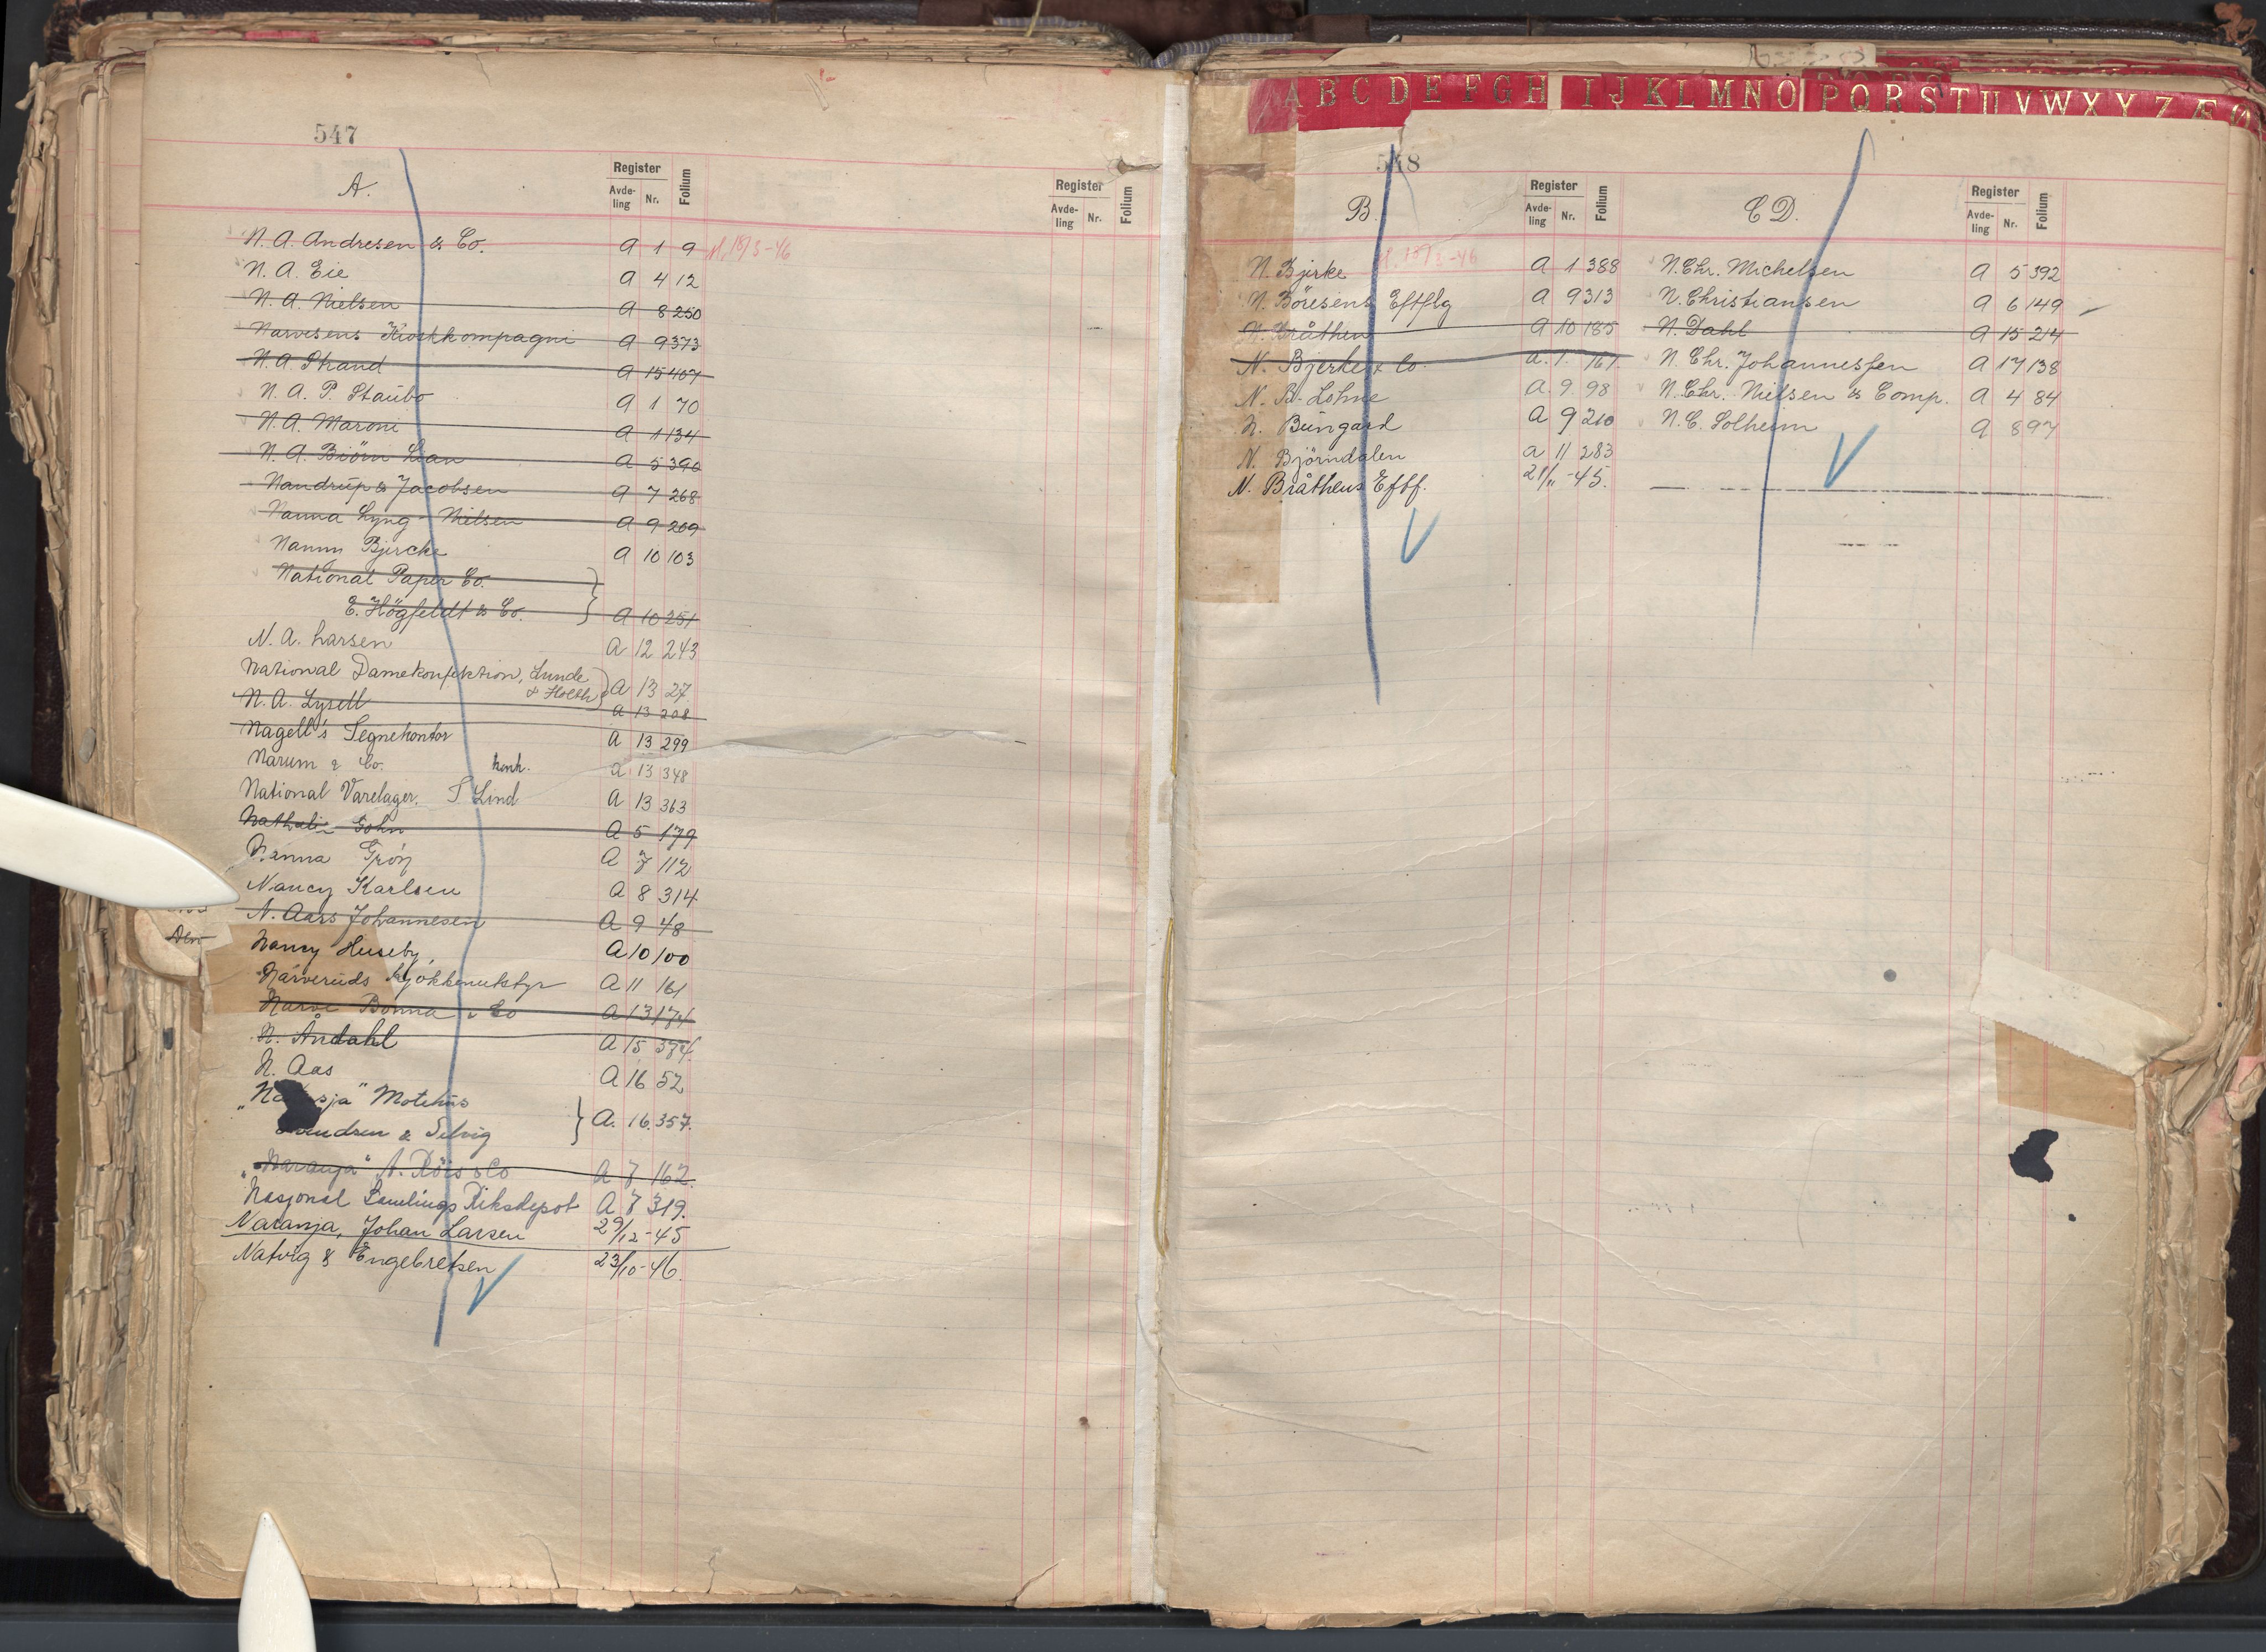 547
A.
Register
Avde-
ling
Nr.
Folium
Register
Avde-
ling
Nr.
Folium
N. A. Andresen & Co. A 1 9 18/3-46
N. A. Eie A 4 12
N. A. Nielsen A 8 250
Narvesens Kioskkompagni A 9 373
N. A. Strand A 15 407
N. A. P. Staubo A 1 70
N. A. Maroni A 1 134
N. A. Biörn Lian A 5 390
Nandrup & Jacobsen A 7 268
Nanna Lyng-Nielsen A 9 269
Nanny Bjercke A 10 103
National Paper Co.
E. Högfeldt & Co. A 10 251
N. A. Larsen A 12 243
National Damekonfektion, Lunde
& Holth A 13 27
N. A. Lysell A 13 208
Nagell's Tegnekontor A 13 299
Narum & Co. konk. A 13 348
National Varelager. T Lind A 13 363
Nathalie Gohn A 5 179
Nanna Gröy A 7 112
Nancy Karlsen A 8 314
N. Aars Johannesen A 9 48
Nancy Huseby A 10 100
Narveruds Kjökkenutstyr A 11 161
Narve Bonna & Co A 13 174
N. Åndahl A 15 374
N. Aas A 16 52
"Na sja" Motehus
Svendsen & Selvig A. 16. 357.
"Naranja" A. Röis & Co A 7 162.
Nasjonal Samlings Riksdepot A 7 319.
Naranja, Johan Larsen 29/12-45
Natvig & Engebretsen 23/10-46.
A B C D E F G H I J K L M N O P Q R S T U V W X Y Z Æ Ø
548
B.
Register
Avde-
ling
Nr.
Folium
C D.
Register
Avde-
ling
Nr.
Folium
N. Bjerke 18/3-46 A 1 388
N. Böresens Eftflg A 9 313
N. Bråthen A 10 185
N. Bjerke & Co. A. 1. 161
N. B. Lohne A. 9. 98
N. Bungård A 9 210
N. Björndalen A 11 283
N. Bråthens Eftf. 21/11-45.
N. Chr. Michelsen A 5 392
N. Christiansen A 6 149
N. Dahl A 15 214
N. Chr. Johannessen A 17 138
N. Chr. Nielsen & Comp. A 4 84
N. C. Solheim A 8 97